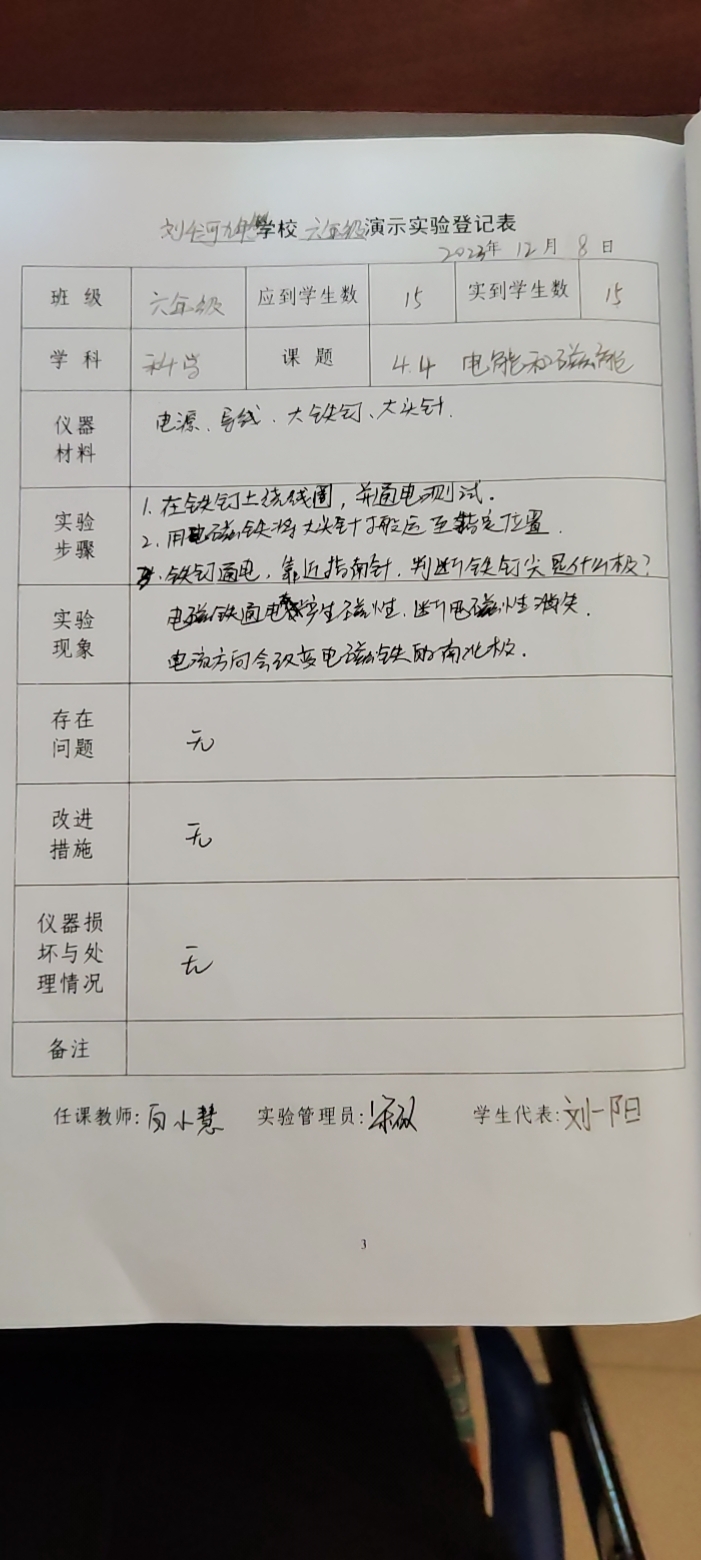 刘家河九年制学校 六年级演示实验登记表
2023年 12月 8日
班 级 六年级 应到学生数 15 实到学生数 15
学 科 科学 课 题 4.4 电能和磁能
仪器材料 电源、导线、大铁钉、大头针.
实验步骤
1. 在铁钉上绕线圈,并通电测试.
2. 用电磁铁将大头针搬运至指定位置.
3. 铁钉通电,靠近指南针,判断铁钉尖是什么极?
实验现象
电磁铁通电产生磁性,断电磁性消失.
电流方向会改变电磁铁的南北极.
存在问题 无
改进措施 无
仪器损坏与处理情况 无
备注
任课教师: 小慧 实验管理员: 学生代表:刘一阳
3